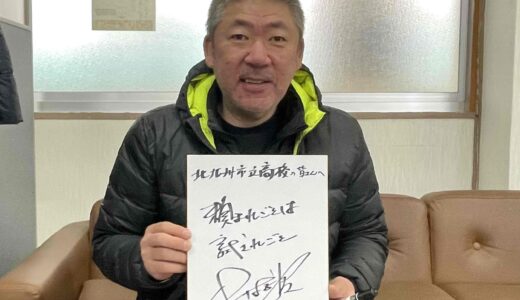 北九州市立高校の皆さんへ
頼まれごとは
試されごと